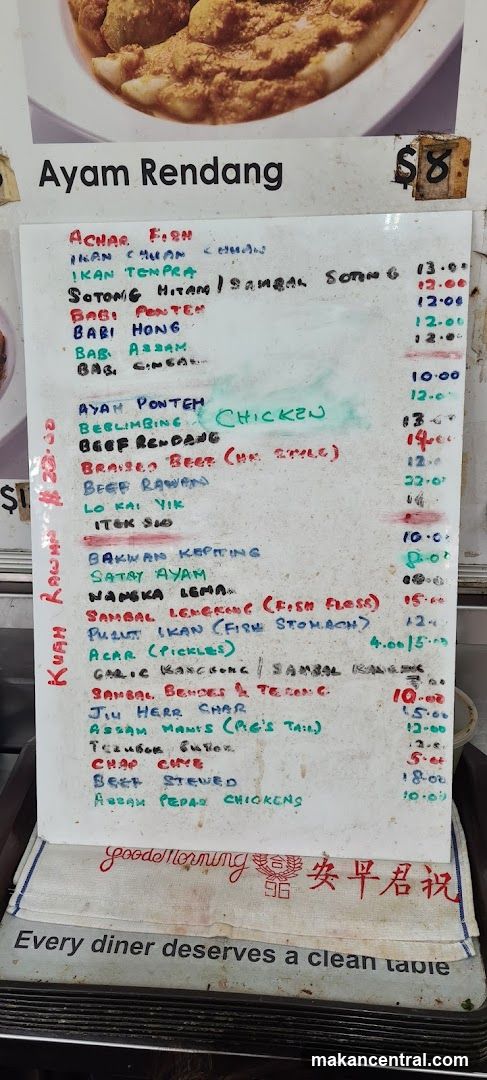 Ayam Rendang $8
ACHAR FISH
IKAN CHUAN CHUAN
IKAN TEMPRA
SOTONG HITAM / SAMBAL SOTONG 13.00
BABI PONTEH 12.00
BABI HONG 12.00
BABI ASSAM 12.00
BABI 12.00
10.00
AYAM PONTEH 12.00
BEBLIMBING CHICKEN
BEEF RENDANG 13.00
BRAISED BEEF (HK STYLE) 14.00
BEEF RAWAN 12.0
LO KAI YIK 22.00
ITEK SIO 14
BAKWAN KEPITING 10.0
SATAY AYAM 8.00
NANGKA LEMA 10.0
SAMBAL LENGKONG (FISH FLOSS) 15.00
PURUT IKAN (FISH STOMACH) 12.
ACAR (PICKLES) 4.00/5.00
GARLIC KANGKONG / SAMBAL
SAMBAL BENDES & TERONG 10.00
JIU HERR CHAR 15.00
ASSAM MANIS (PIG'S TAIL) 12.00
TERUBOK
CHAP CHYE 5.00
BEEF STEWED 18.00
ASSAM PEDAS CHICKENS 10.00
KUAH RAWAN $20.00
$1
Good Morning
祝君早安
Every diner deserves a clean table
makancentral.com